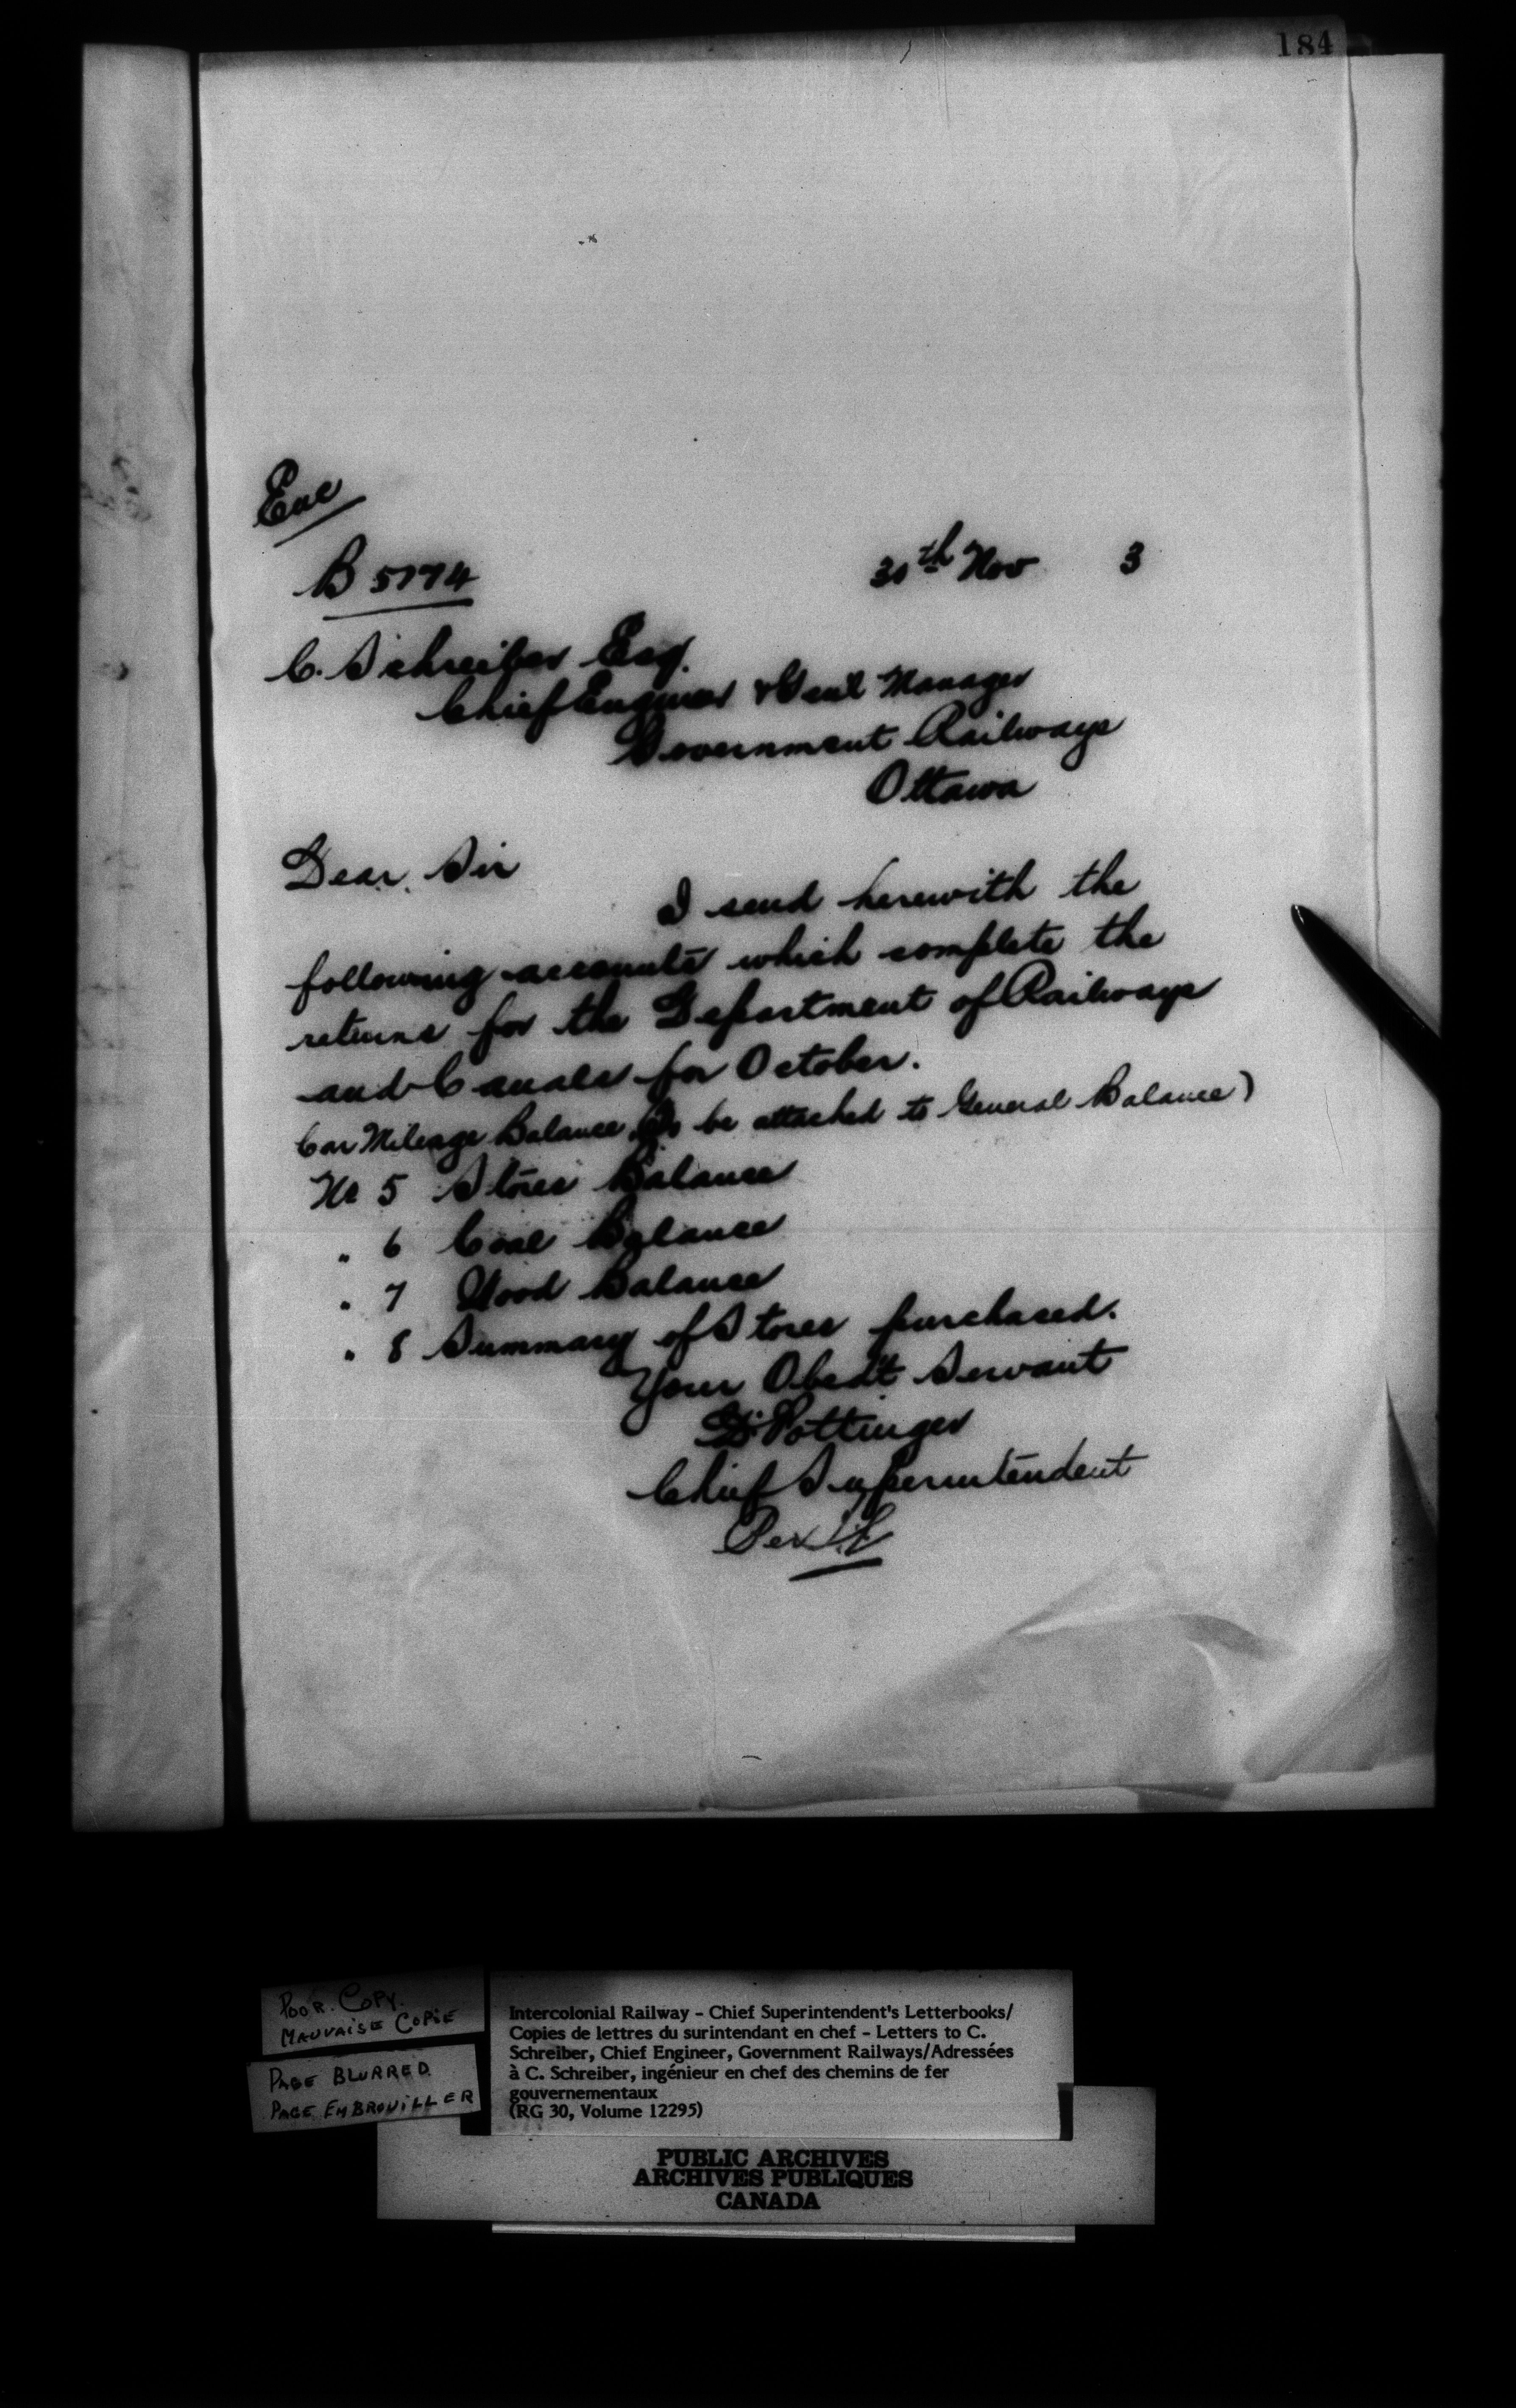 184
Enc
B 5774
30th Nov 3
C. Schreiber Esq.
Chief Engineer & Genl Manager
Government Railways
Ottawa
Dear Sir
I send herewith the
following accounts which complete the
returns for the Department of Railways
and Canals for October.
Car Mileage Balance (To be attached to General Balance)
No 5 Stores Balance
" 6 Coal Balance
" 7 Wood Balance
" 8 Summary of Stores purchased.
Your Obedt Servant
D. Pottinger
Chief Superintendent
Per
POOR COPY.
MAUVAISE COPIE
PAGE BLURRED
PAGE EMBROUILLER
Intercolonial Railway - Chief Superintendent's Letterbooks/
Copies de lettres du surintendant en chef - Letters to C.
Schreiber, Chief Engineer, Government Railways/Adressées
à C. Schreiber, ingénieur en chef des chemins de fer
gouvernementaux
(RG 30, Volume 12295)
PUBLIC ARCHIVES
ARCHIVES PUBLIQUES
CANADA